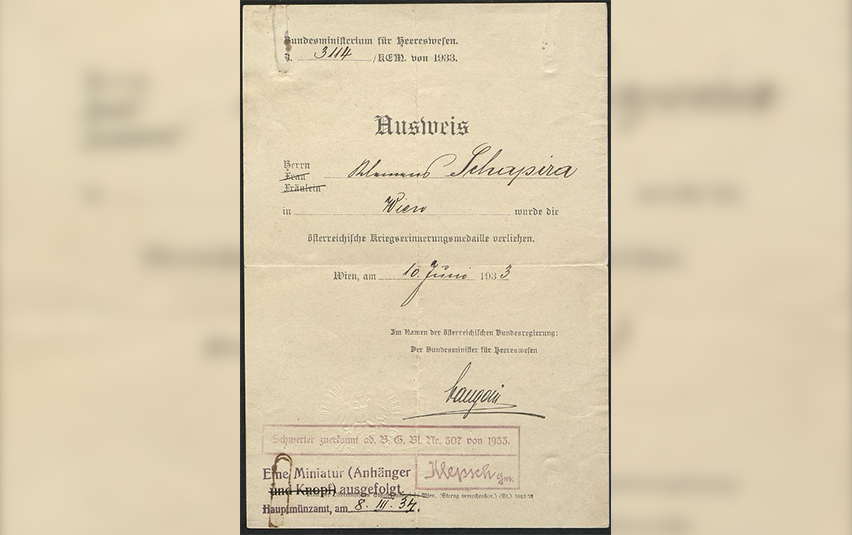 Bundesministerium für Heereswesen.
Z. 3114 /KEM. von 1933.
Ausweis
Herrn Klemens Schapira
Frau
Fräulein
in Wien wurde die
österreichische Kriegserinnerungsmedaille verliehen.
Wien, am 10. Juni 1933
Im Namen der österreichischen Bundesregierung:
Der Bundesminister für Heereswesen
Vaugoin
Schwerter zuerkannt ad. B. G. Bl. Nr. 507 von 1933.
Klepsch
Eine Miniatur (Anhänger
und Knopf) ausgefolgt.
Wien. (Streng verrechenbar.) (St.)
Hauptmünzamt, am 8. III. 34.